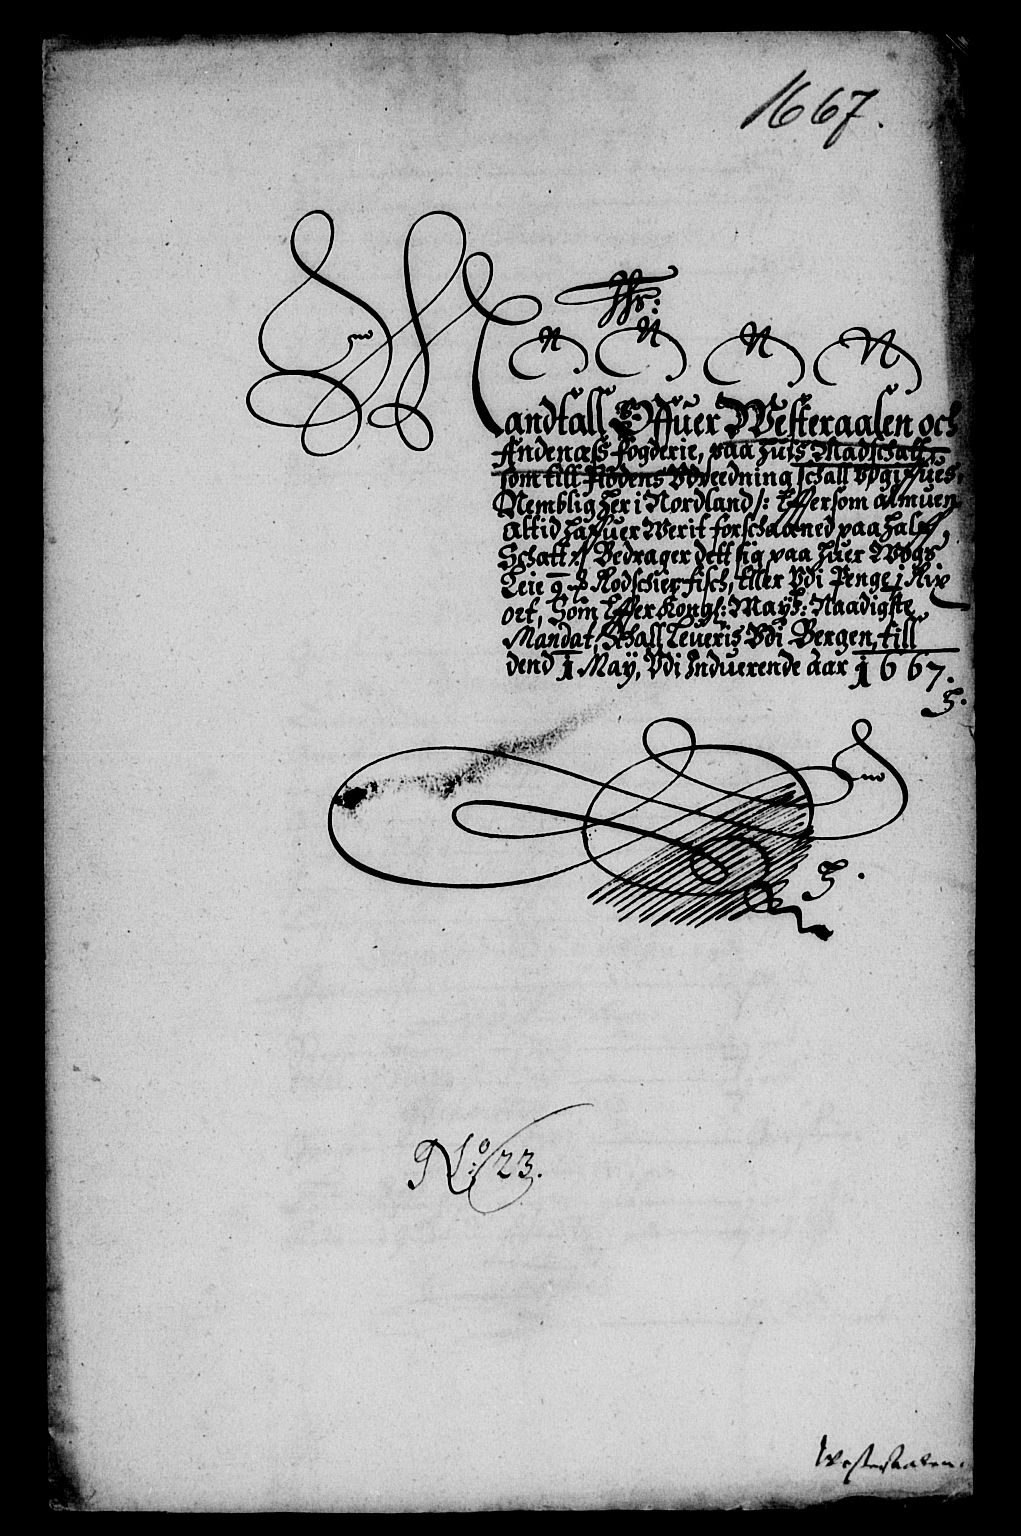 1667.
N N N N
Mandtall Offuer Westeraalen och
Andenæss fogderie, paa huis Madschatt,
som till flodens Vdreedning schall vpgiffues,
Nemblig her i Nordland /: Effersom almuen
altid haffuer Werit forschaaned paa halff
Schatt :/ Bedrager dett sig paa huer Wogs
Leie Rodschier fisch, Eller Vdi Penge j Rix
ort, Som Effer Kongl: Mayts: Naadigste
Mandat, Schall Leueris Vdi Bergen, till
dend 1 May, Vdi Induerende aar 1667.
No: 23.
Westeraalen.